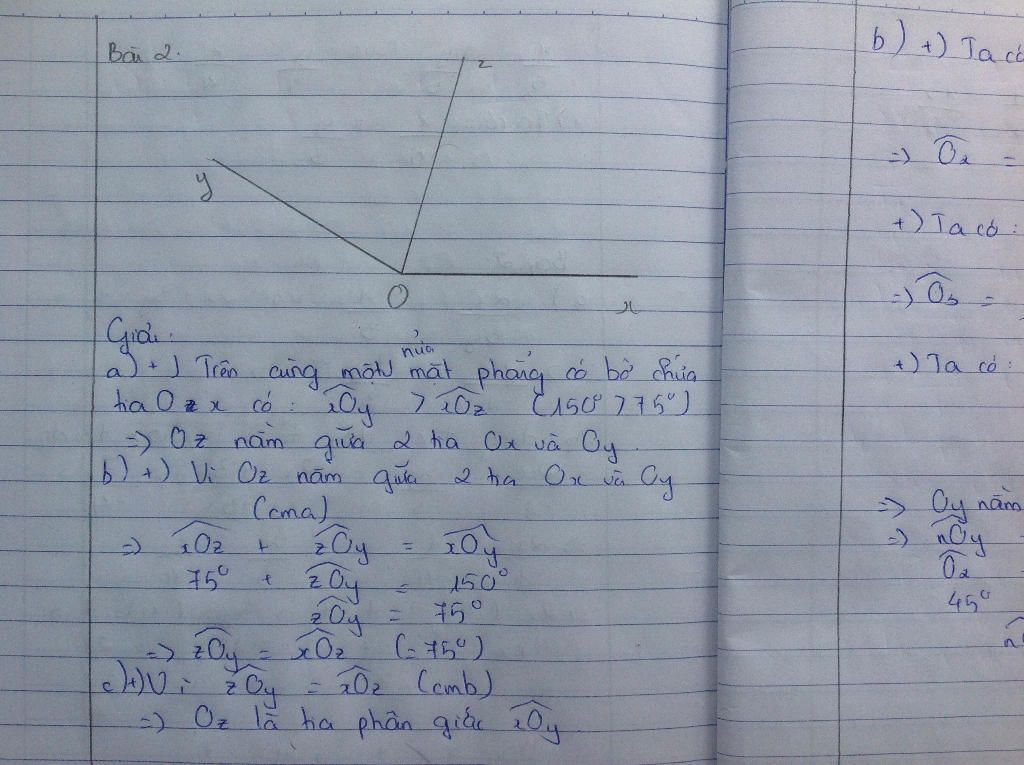 Bài 2.
z
y
O
x
Giải:
a) +) Trên cùng một nửa mặt phẳng có bờ chứa
tia Ox có: xOy > xOz (150° > 75°)
=> Oz nằm giữa 2 tia Ox và Oy.
b) +) Vì Oz nằm giữa 2 tia Ox và Oy
(cma)
=> xOz + zOy = xOy
75° + zOy = 150°
zOy = 75°
=> zOy = xOz (= 75°)
c) +) Vì zOy = xOz (cmb)
=> Oz là tia phân giác xOy.
b) +) Ta có
=> O₂ =
+) Ta có:
=> O₃ =
+) Ta có:
=> Oy nằm
=> nOy
O₂
45°